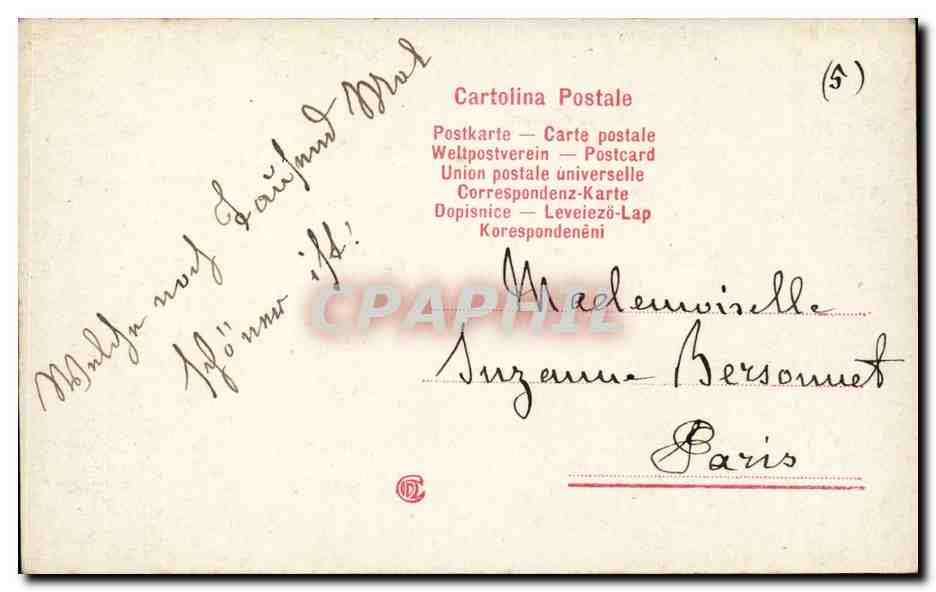 (5)
Cartolina Postale
Postkarte — Carte postale
Weltpostverein — Postcard
Union postale universelle
Correspondenz-Karte
Dopisnice — Leveiezö-Lap
Korespondeněni
Welche noch Tausend Mal
schöner ist!
CPAPHIL
Mademoiselle
Suzanne Bersonnet
Paris